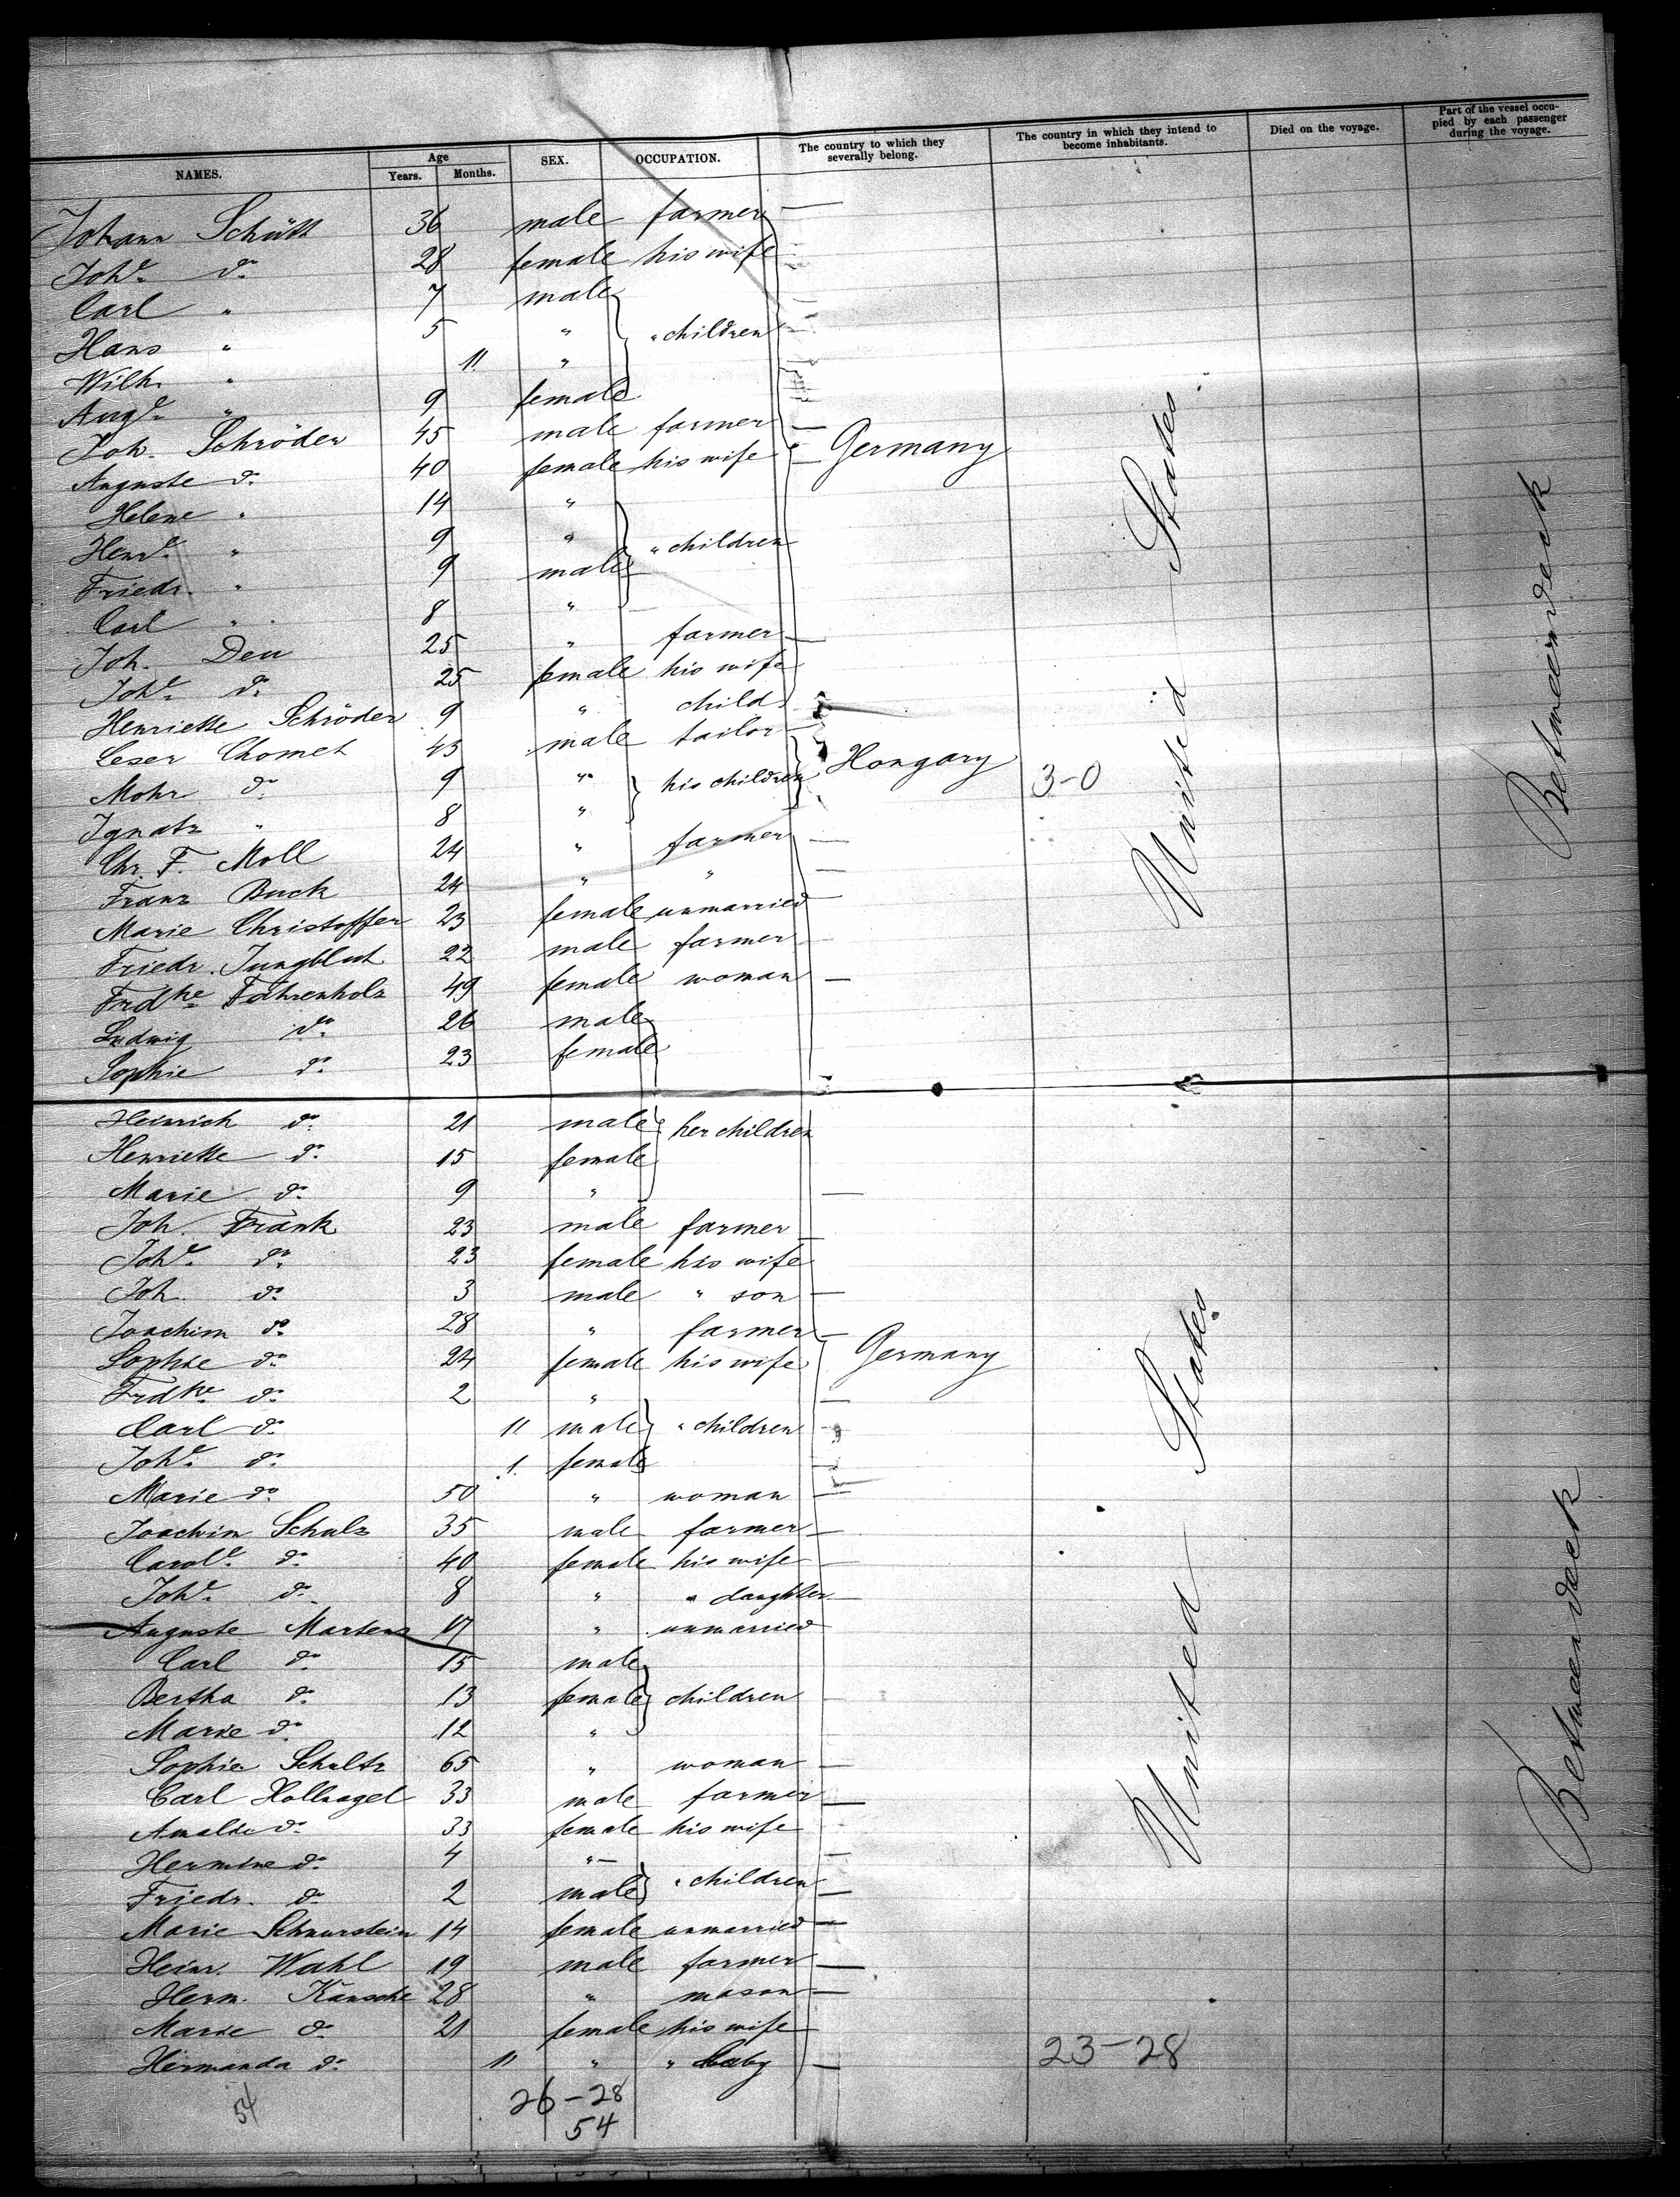 NAMES. Age Years. Months. SEX. OCCUPATION. The country to which they severally belong. The country in which they intend to become inhabitants. Died on the voyage. Part of the vessel occupied by each passenger during the voyage.
Johann Schütt 36 male farmer
Johe do 28 female his wife
Carl " 7 male
Hans " 5 " " children
Wilh. " 11 "
Auge " 9 female
Joh. Schröder 45 male farmer
Auguste do 40 female his wife Germany
Helene " 14 "
Henre " 9 " " children
Friedr. " 9 male
Carl " 8 "
Joh. Deu 25 " farmer
Johe do 25 female his wife
Henriette Schröder 9 " child
Leser Chomet 43 male tailor
Mohr do 9 " his children Hongary 3-0
Ignatz " 8 "
Chr. F. Moll 24 " farmer
Franz Buck 24 " "
Marie Christoffer 23 female unmarried
Friedr. Jungblut 22 male farmer
Frdke Fahrenholz 49 female woman
Ludwig do 26 male
Sophie do 23 female
United States
Betweendeck
Heinrich do 21 male her children
Henriette do 15 female
Marie do 9 "
Joh. Frank 23 male farmer
Johe do 23 female his wife
Joh. do 3 male " son
Joachim do 28 " farmer
Sophie do 24 female his wife Germany
Frdke do 2 "
Carl do 11 male " children
Johe do 1. female
Marie do 50 " woman
Joachim Schulz 35 male farmer
Carole do 40 female his wife
Johe do 8 " " daughter
Auguste Martens 17 " unmarried
Carl do 15 male
Bertha do 13 female children
Marie do 12 "
Sophie Schultz 65 " woman
Carl Hollnagel 33 male farmer
Amalie do 33 female his wife
Hermine do 4 "
Friedr. do 2 male " children
Marie Schnurstein 14 female unmarried
Heinr. Wahl 19 male farmer
Herm. Kansche 28 " mason
Marie do 21 female his wife
Hermanda do 11 " " baby 23-28
United States
Betweendeck
54 26-28
54